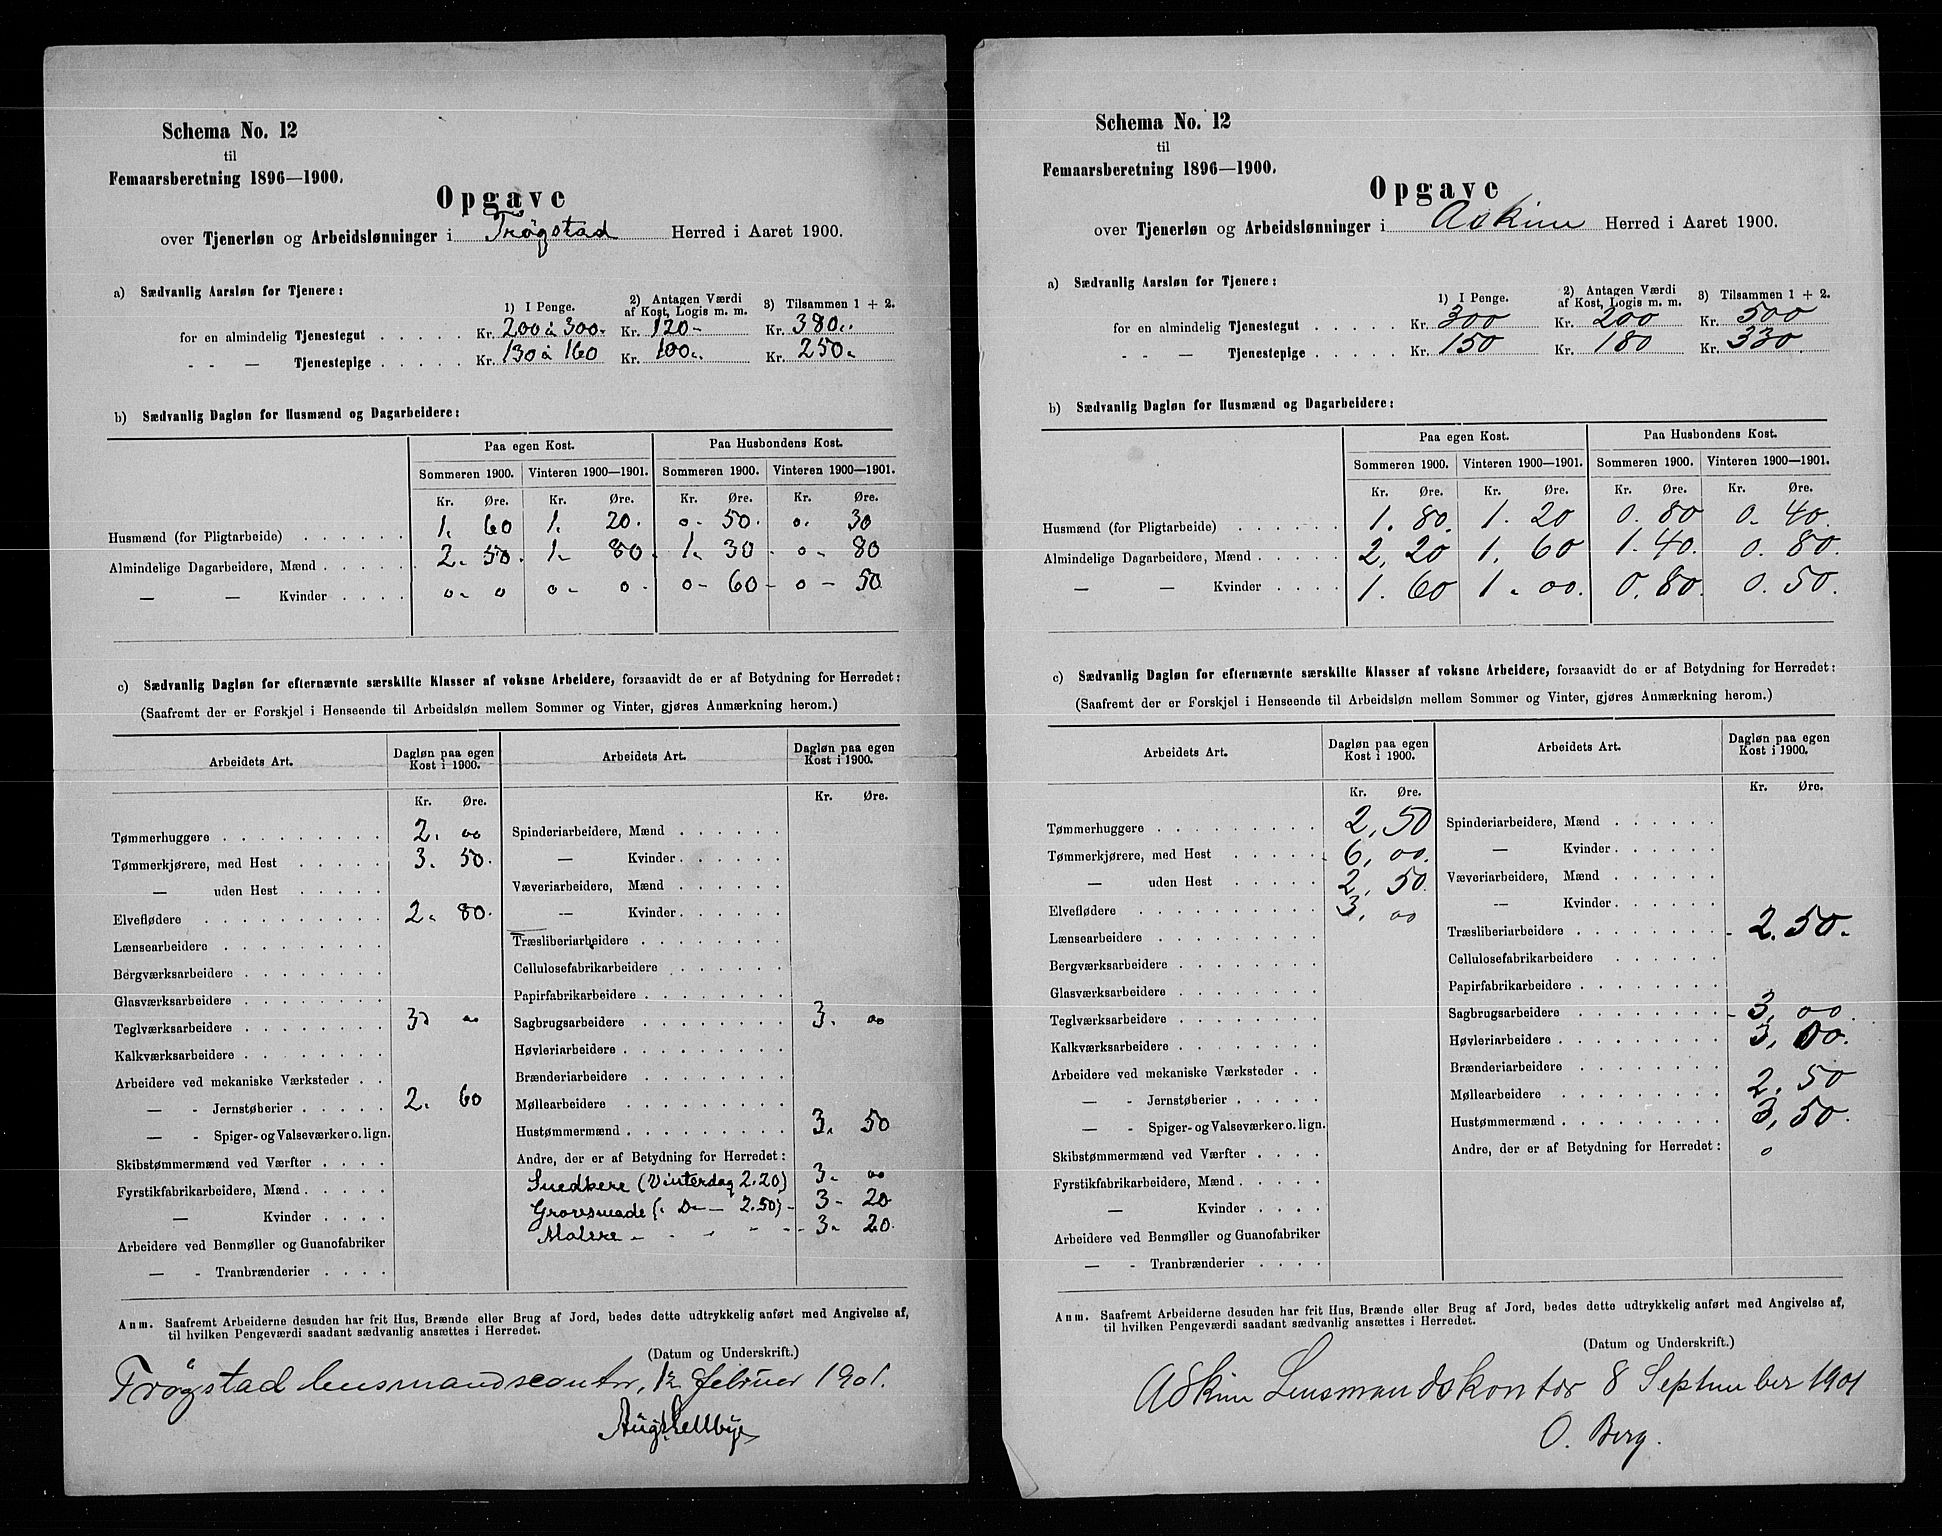 Schema No. 12
til
Femaarsberetning 1896—1900.
Opgave
over Tjenerløn og Arbeidslønninger i Trøgstad Herred i Aaret 1900.
a) Sædvanlig Aarsløn for Tjenere:
1) I Penge. 2) Antagen Værdi af Kost, Logis m. m. 3) Tilsammen 1 + 2.
for en almindelig Tjenestegut . . . . . Kr. 200 à 300- Kr. 120- Kr. 380..
- - — Tjenestepige . . . . . Kr. 130 à 160 Kr. 100.. Kr. 250.
b) Sædvanlig Dagløn for Husmænd og Dagarbeidere:
Paa egen Kost. Paa Husbondens Kost.
Sommeren 1900. Vinteren 1900—1901. Sommeren 1900. Vinteren 1900—1901.
Kr. Øre. Kr. Øre. Kr. Øre. Kr. Øre.
Husmænd (for Pligtarbeide) . . . . . . 1. 60 1. 20. 0- 50. 0. 30
Almindelige Dagarbeidere, Mænd . . . . . 2. 50. 1- 80. 1. 30 0- 80
— — Kvinder . . . . 0- 0 0- 0. 0- 60- 0- 50
c) Sædvanlig Dagløn for efternævnte særskilte Klasser af voksne Arbeidere, forsaavidt de er af Betydning for Herredet:
(Saafremt der er Forskjel i Henseende til Arbeidsløn mellem Sommer og Vinter, gjøres Anmærkning herom.)
Arbeidets Art. Dagløn paa egen Kost i 1900. Arbeidets Art. Dagløn paa egen Kost i 1900.
Kr. Øre. Kr. Øre.
Tømmerhuggere 2. 00 Spinderiarbeidere, Mænd
Tømmerkjørere, med Hest 3. 50. — Kvinder
— uden Hest Væveriarbeidere, Mænd
Elveflødere 2. 80. — Kvinder
Lænsearbeidere Træsliberiarbeidere
Bergværksarbeidere Cellulosefabrikarbeidere
Glasværksarbeidere Papirfabrikarbeidere
Teglværksarbeidere 3 00 Sagbrugsarbeidere 3. 00
Kalkværksarbeidere Høvleriarbeidere
Arbeidere ved mekaniske Værksteder Brænderiarbeidere
— - Jernstøberier 2. 60 Møllearbeidere
— - Spiger- og Valseværker o. lign. Hustømmermænd 3. 50
Skibstømmermænd ved Værfter Andre, der er af Betydning for Herredet:
Fyrstikfabrikarbeidere, Mænd Snedkere (Vinterdag 2.20) 3. 00
— Kvinder Grovsmede (. D- — 2.50) - 3- 20
Arbeidere ved Benmøller og Guanofabriker Malere - " " " - 3. 20.
— - Tranbrænderier
Anm. Saafremt Arbeiderne desuden har frit Hus, Brænde eller Brug af Jord, bedes dette udtrykkelig anført med Angivelse af,
til hvilken Pengeværdi saadant sædvanlig ansættes i Herredet.
(Datum og Underskrift.)
Trøgstad lensmandscontr, 12 februer 1901.
Aug. Sellbye
Schema No. 12
til
Femaarsberetning 1896—1900.
Opgave
over Tjenerløn og Arbeidslønninger i Askim Herred i Aaret 1900.
a) Sædvanlig Aarsløn for Tjenere:
1) I Penge. 2) Antagen Værdi af Kost, Logis m. m. 3) Tilsammen 1 + 2.
for en almindelig Tjenestegut . . . . . Kr. 300 Kr. 200 Kr. 500
- - — Tjenestepige . . . . . Kr. 150 Kr. 180 Kr. 330
b) Sædvanlig Dagløn for Husmænd og Dagarbeidere:
Paa egen Kost. Paa Husbondens Kost.
Sommeren 1900. Vinteren 1900—1901. Sommeren 1900. Vinteren 1900—1901.
Kr. Øre. Kr. Øre. Kr. Øre. Kr. Øre.
Husmænd (for Pligtarbeide) . . . . . . 1. 80. 1. 20 0. 80 0. 40.
Almindelige Dagarbeidere, Mænd . . . . . 2, 20 1, 60 1. 40. 0. 80.
— — Kvinder . . . . 1. 60 1. 00. 0. 80. 0. 50.
c) Sædvanlig Dagløn for efternævnte særskilte Klasser af voksne Arbeidere, forsaavidt de er af Betydning for Herredet:
(Saafremt der er Forskjel i Henseende til Arbeidsløn mellem Sommer og Vinter, gjøres Anmærkning herom.)
Arbeidets Art. Dagløn paa egen Kost i 1900. Arbeidets Art. Dagløn paa egen Kost i 1900.
Kr. Øre. Kr. Øre.
Tømmerhuggere 2, 50 Spinderiarbeidere, Mænd
Tømmerkjørere, med Hest 6, 00. — Kvinder
— uden Hest 2, 50. Væveriarbeidere, Mænd
Elveflødere 3, 00 — Kvinder
Lænsearbeidere Træsliberiarbeidere 2. 50.
Bergværksarbeidere Cellulosefabrikarbeidere
Glasværksarbeidere Papirfabrikarbeidere
Teglværksarbeidere Sagbrugsarbeidere 3, 00.
Kalkværksarbeidere Høvleriarbeidere 3, 00.
Arbeidere ved mekaniske Værksteder Brænderiarbeidere
— - Jernstøberier Møllearbeidere 2, 50
— - Spiger- og Valseværker o. lign. Hustømmermænd 3, 50.
Skibstømmermænd ved Værfter Andre, der er af Betydning for Herredet: 0
Fyrstikfabrikarbeidere, Mænd
— Kvinder
Arbeidere ved Benmøller og Guanofabriker
— - Tranbrænderier
Anm. Saafremt Arbeiderne desuden har frit Hus, Brænde eller Brug af Jord, bedes dette udtrykkelig anført med Angivelse af,
til hvilken Pengeværdi saadant sædvanlig ansættes i Herredet.
(Datum og Underskrift.)
Askim Lensmandskontor 8 September 1901
O. Berg.